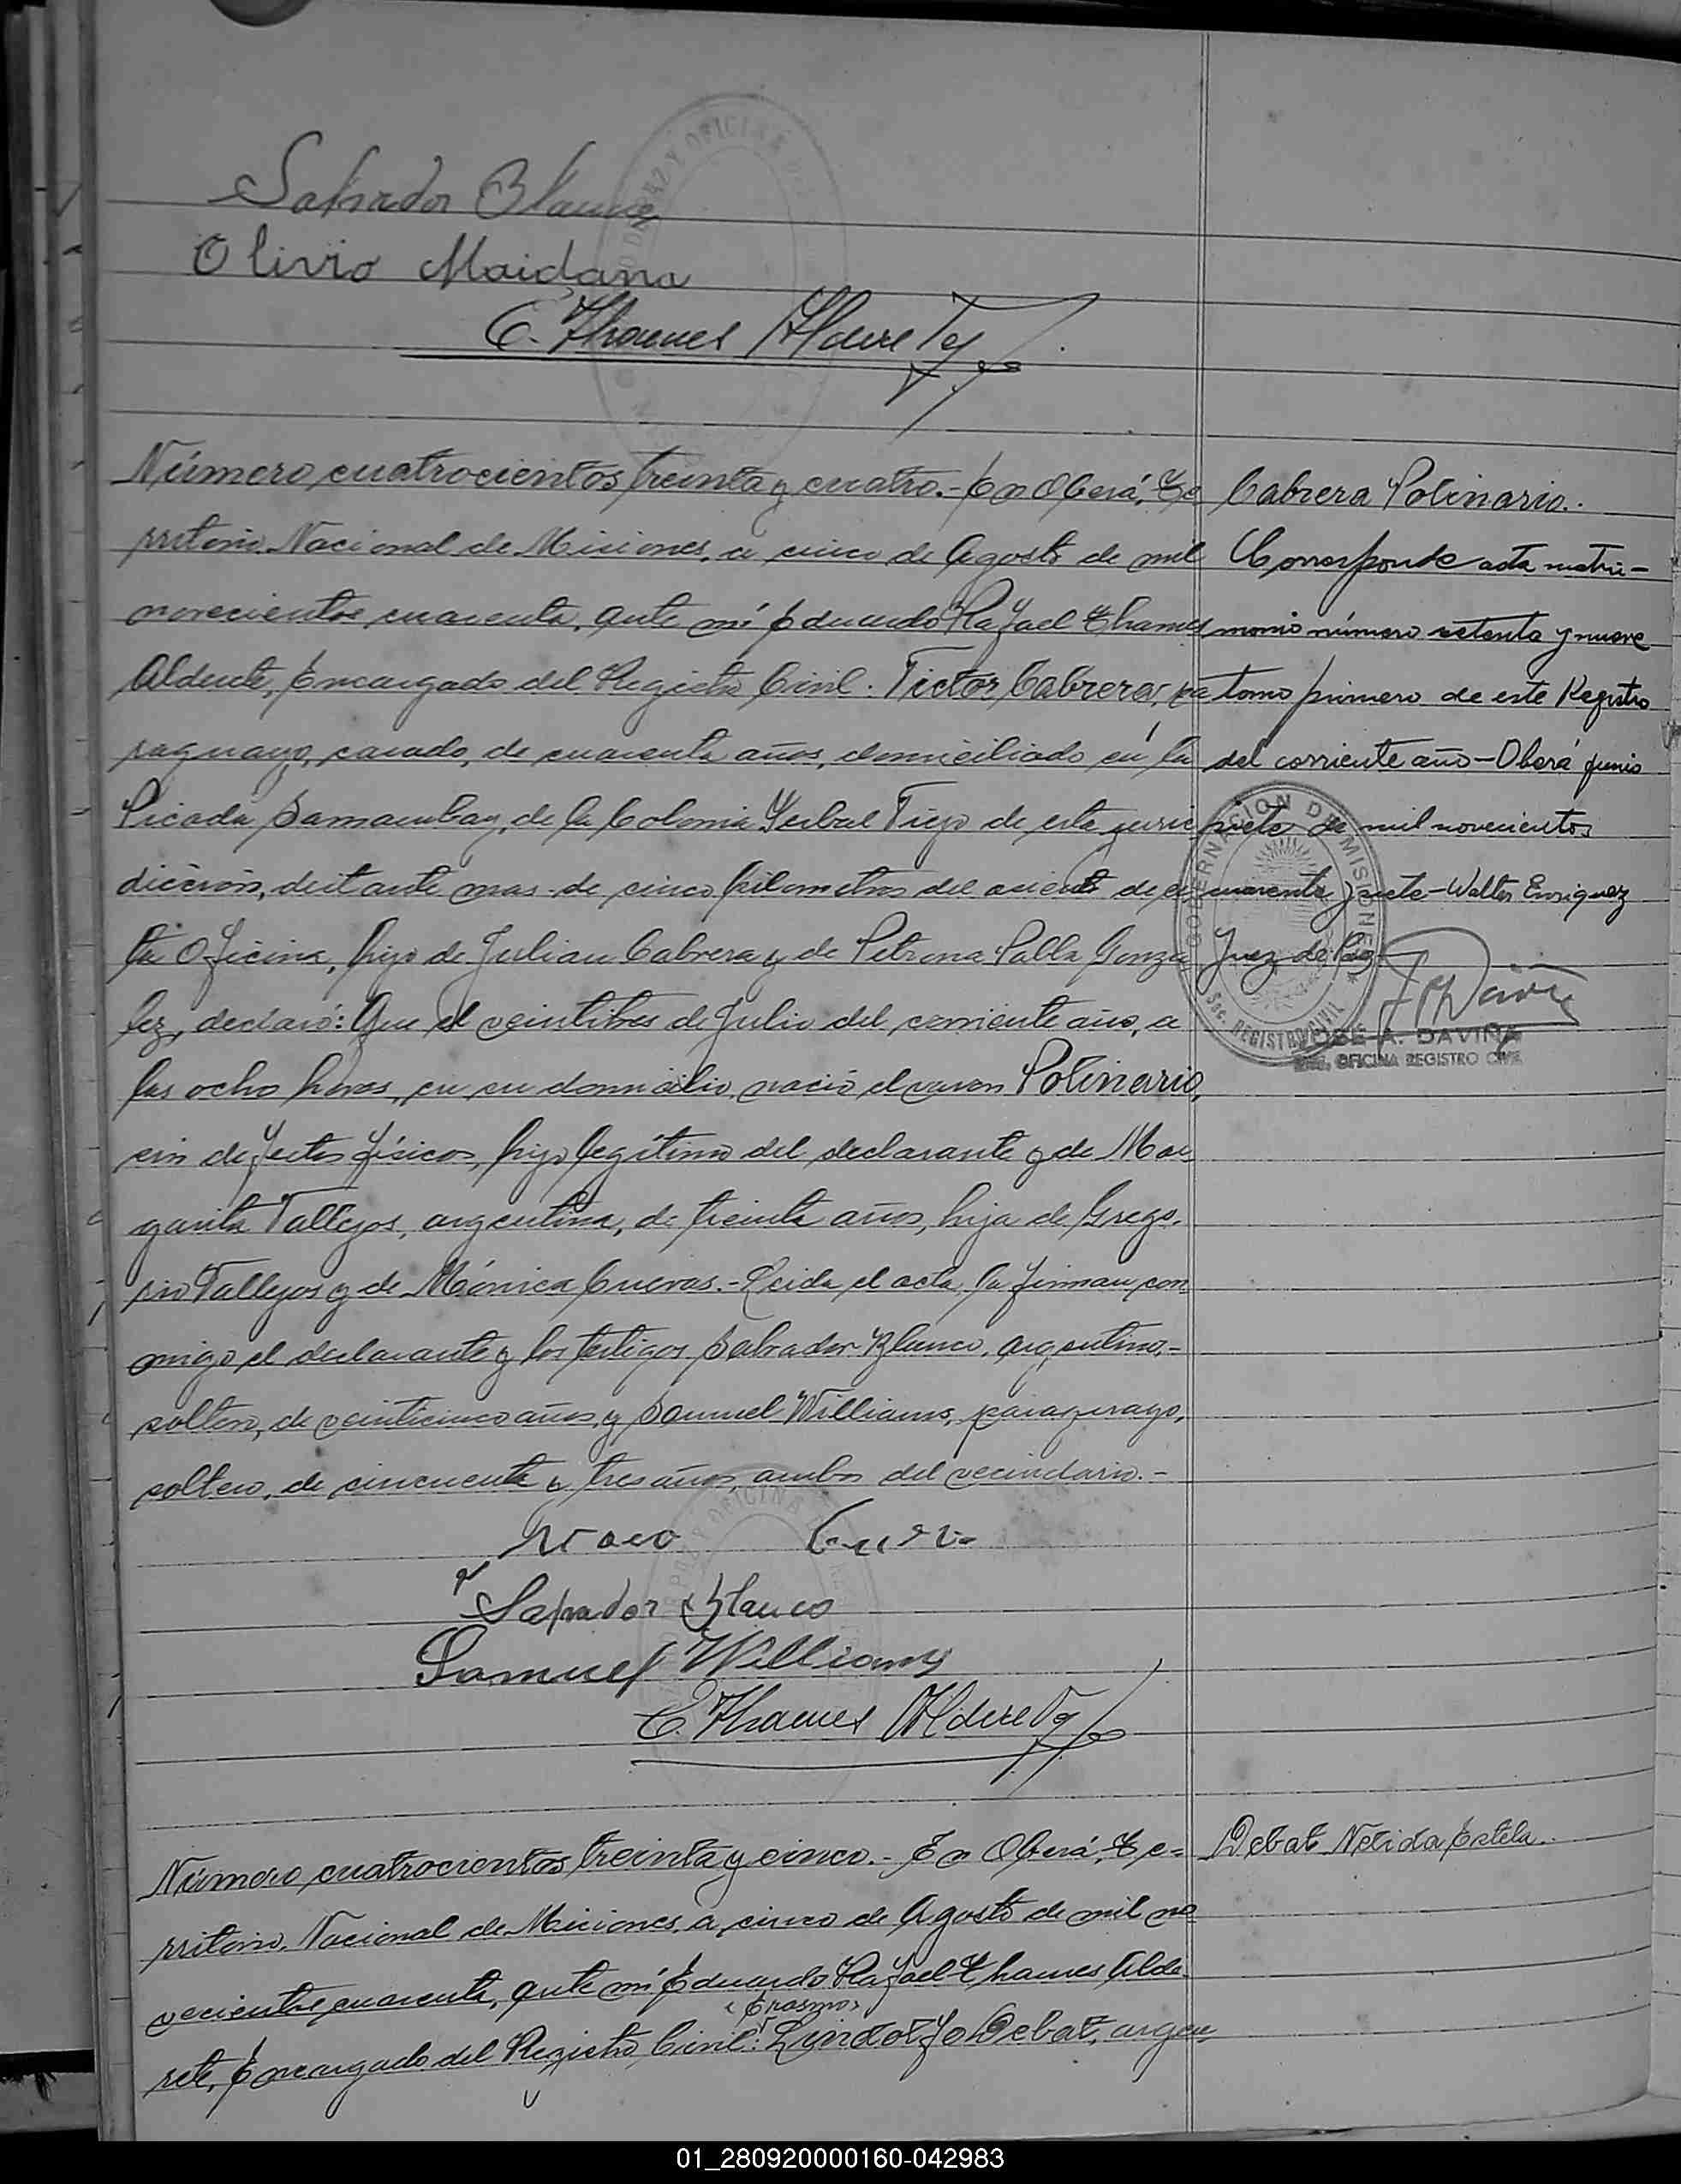 Salvador Blanco
Olivio Maidana
E. Thames Alderete
Número cuatrocientos treinta y cuatro.- En Oberá, Te
rritorio Nacional de Misiones, a cinco de Agosto de mil
novecientos cuarenta, ante mí Eduardo Rafael Thames
Alderete, Encargado del Registro Civil: Victor Cabrera, pa
raguayo, casado, de cuarenta años, domiciliado en la
Picada Samambay, de la Colonia Yerbal Viejo de esta juris
dicción, distante mas de cinco kilometros del asiento de es
ta Oficina, hijo de Julian Cabrera y de Petrona Palla Gonza
lez, declaró: Que el veintitres de Julio del corriente año, a
las ocho horas, en su domicilio, nació el varon Polinario,
sin defectos físicos, hijo legítimo del declarante y de Mar
garita Vallejos, argentina, de treinta años, hija de Grego-
rio Vallejos y de Mónica Cuevas.- Leida el acta, la firman con
migo el declarante y los testigos Salvador Blanco, argentino,-
soltero, de veinticinco años y Samuel Williams, paraguayo,
soltero, de cincuenta y tres años, ambos del vecindario.-
Salvador Blanco
Samuel Williams
E. Thames Alderete
Cabrera Polinario.
Corresponde acta matri-
monio número setenta y nueve
tomo primero de este Registro
del corriente año - Oberá junio
siete de mil novecientos
cuarenta y siete - Walter Enriquez
Juez de Paz
GOBERNACION DE MISIONES
Sec. REGISTRO CIVIL
JOSE A. DAVIÑA
ENC. OFICINA REGISTRO CIVIL
Número cuatrocientos treinta y cinco.- En Oberá, Te-
rritorio Nacional de Misiones, a cinco de Agosto de mil no
vecientos cuarenta, ante mí Eduardo Rafael Thames Alde-
(Erasmo)
rete, Encargado del Registro Civil: Lindolfo Debat, argen
Debat Nelida Estela.
01_280920000160-042983